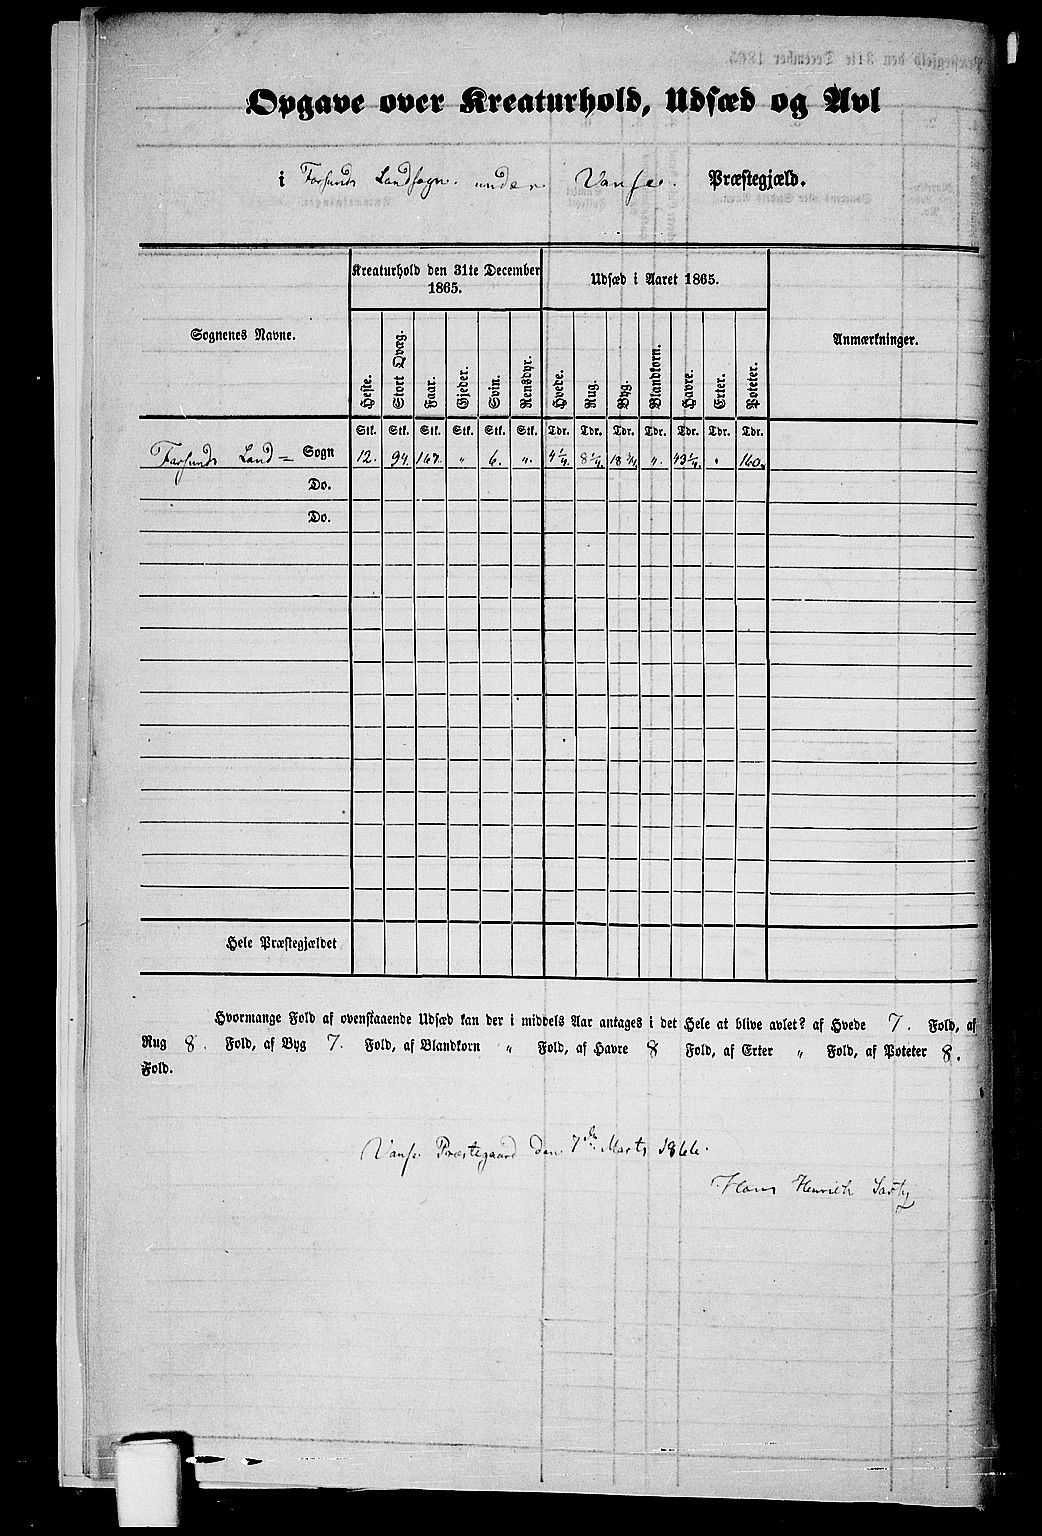 Opgave over Kreaturhold, Udsæd og Avl
i Farsunds Landsogn under Vanse Præstegjæld.
Sognenes Navne.
Kreaturhold den 31te December 1865.
Udsæd i Aaret 1865.
Anmærkninger.
Heste. Stort Qvæg. Faar. Gjeder. Sviin. Rensdyr. Hvede. Rug. Byg. Blandkorn. Havre. Erter. Poteter.
Stk. Stk. Stk. Stk. Stk. Stk. Tdr. Tdr. Tdr. Tdr. Tdr. Tdr. Tdr.
Farsunds Land= Sogn 12. 94. 167. " 6. ". 4 1/4. 8 1/4. 18 3/4. ". 43 1/4. " 160.
Do.
Do.
Hele Præstegjældet
Hvormange Fold af ovenstaaende Udsæd kan der i middels Aar antages i det Hele at blive avlet? af Hvede 7. Fold, af
Rug 8. Fold, af Byg 7. Fold, af Blandkorn " Fold, af Havre 8 Fold, af Erter " Fold, af Poteter 8.
Fold.
Vanse Præstegaard den 7de Marts 1866.
Hans Henrich